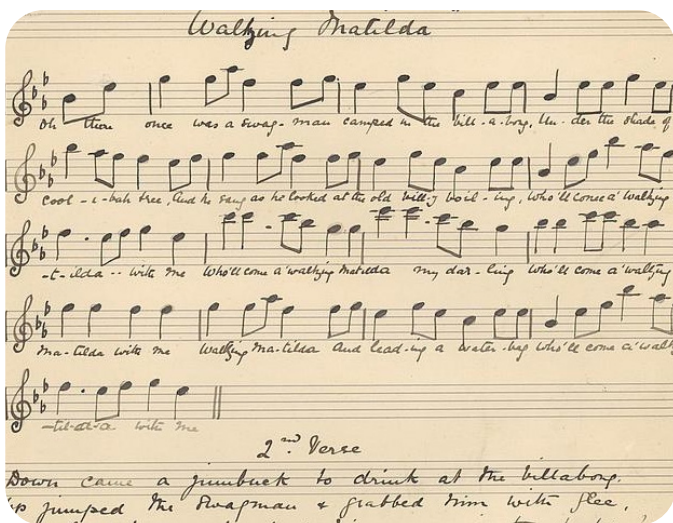 Waltzing Matilda
Oh there once was a swag-man camped in the bill-a-bong, Un-der the shade of
cool-i-bah tree, And he sang as he looked at the old bill-y boil-ing, Who'll come a' waltzing
-t-ilda-- with me Who'll come a' waltzing Matilda my dar-ling Who'll come a' waltzing
Ma-tilda with me Waltzing Ma-tilda And lead-ing a water-bag Who'll come a' walt
-til-d-a with me
2nd Verse
Down came a jumbuck to drink at the billabong.
Up jumped the Swagman & grabbed him with glee,